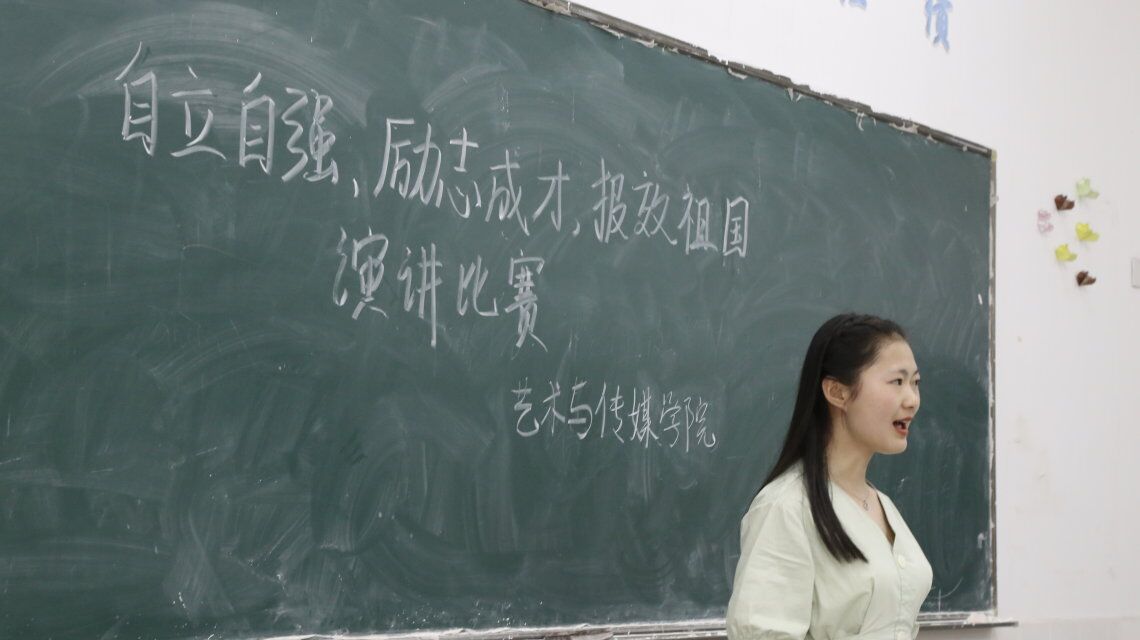 自立自强、励志成才,报效祖国
演讲比赛
艺术与传媒学院